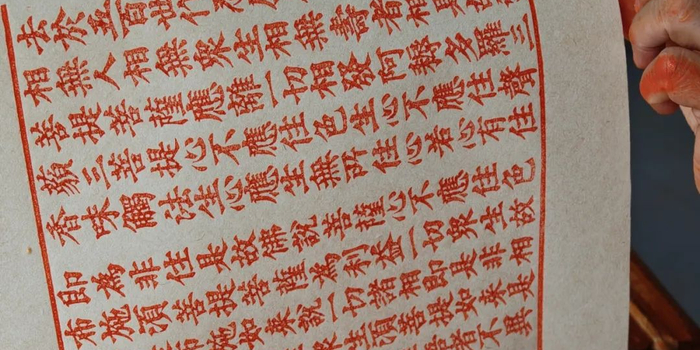 去於五百世
相無人相無眾生相無壽者相是
菩提菩薩應離一切相發阿耨多羅三
藐三菩提心不應住色生心不應住聲
香味觸法生心應生無所住心若心有住
即為非住是故佛說菩薩心不應住色
布施須菩提菩薩為利益一切眾生故
布施如來說一切諸相即是非相
眾生須菩提如來是
者不異